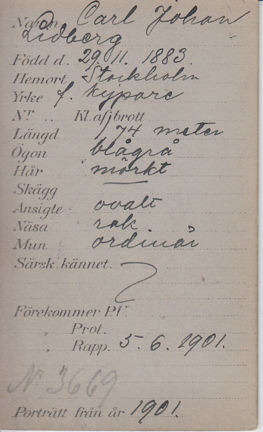 Namn Carl Johan
Lidberg
Född d. 29. 11. 1883.
Hemort Stockholm
Yrke f. kypare
Nr .. Kl. af brott
Längd 1,74 meter
Ögon blågrå
Hår mörkt
Skägg
Ansigte ovalt
Näsa rak
Mun ordinär
Särsk. kännet.
Förekommer PU
„ Prot.
„ Rapp. 5. 6. 1901.
No 3669
Porträtt från år 1901.